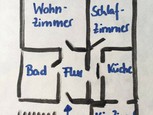 Wohn-
zimmer
Schlaf-
zimmer
Bad
Flur
Küche